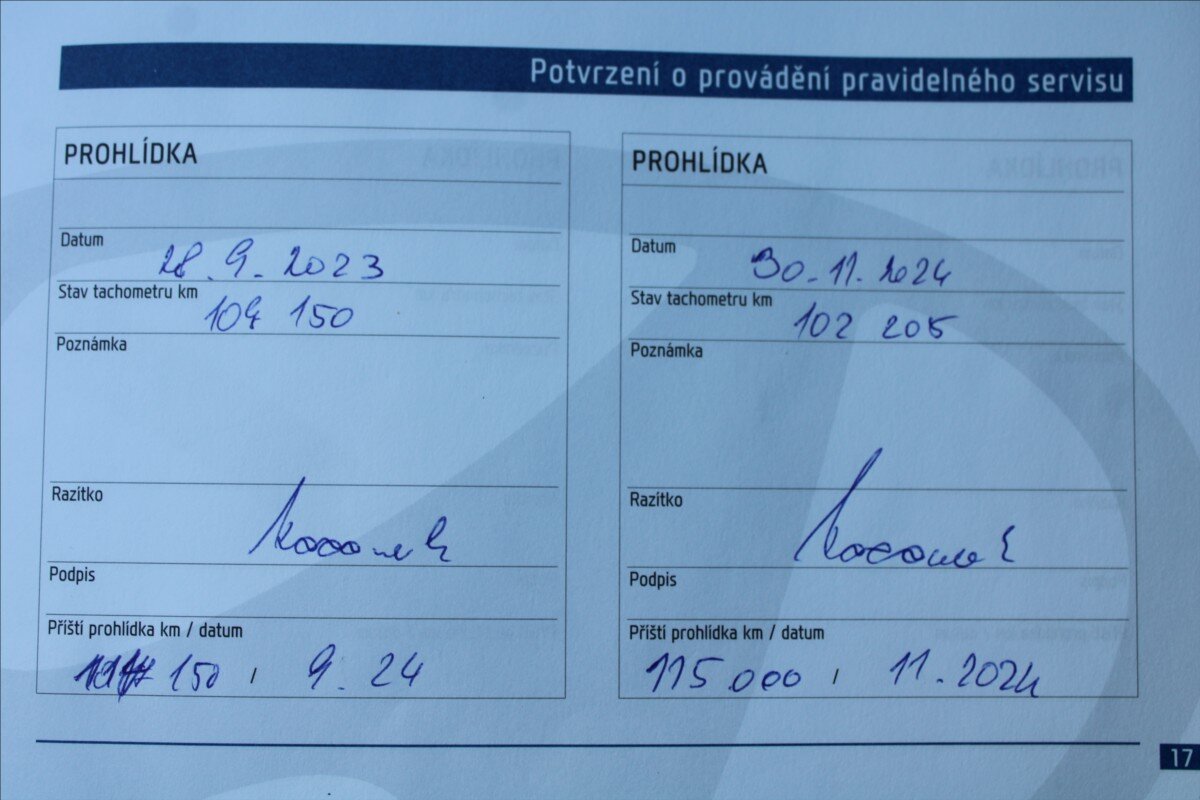 Potvrzení o provádění pravidelného servisu
PROHLÍDKA
Datum
28.9.2023
Stav tachometru km
104 150
Poznámka
Razítko
Podpis
Příští prohlídka km / datum
150 / 9.24
PROHLÍDKA
Datum
30.11.2024
Stav tachometru km
102 205
Poznámka
Razítko
Podpis
Příští prohlídka km / datum
115.000 / 11.2024
17